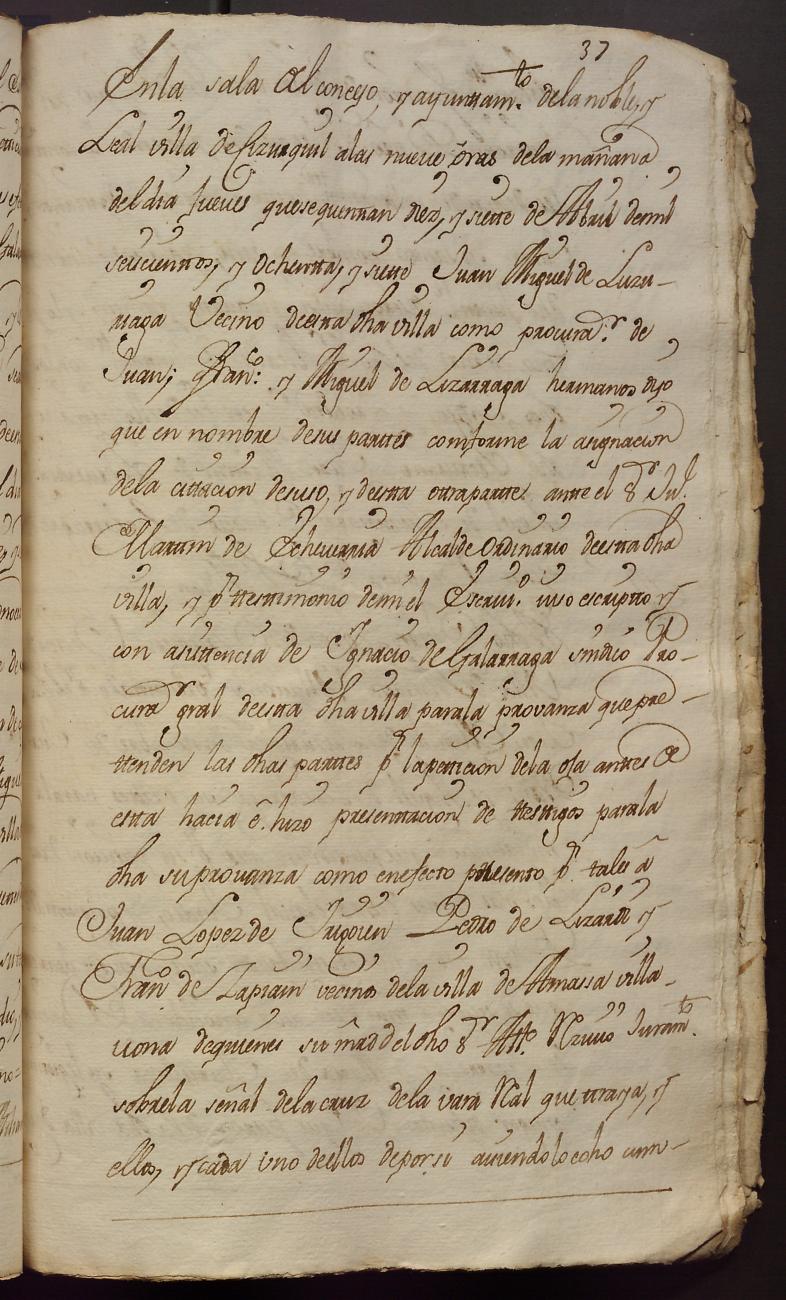 37
En la sala del concejo, y ayunttam.to de la noble, y
Leal villa de Azcuquil a las nueve oras de la mañana
del dia Jueves que se quenttan diez, y siette de Abril de mil
seiscienttos, y ochentta, y siette Juan Miguel de Luzu-
riaga Vecino de estta dha villa como procurad.r de
Juan; Fran.co y Miguel de Lizarraga hermanos dijo
que en nombre de sus parttes comforme la asignacion
de la cittacion de suso, y de estta ottra partte antte el s.r Ju.o
Marttin de Echeverria Alcalde ordinario de estta dha
villa, y p.r ttesttimonio de mi el Escriv.o ynso escriptto y
con asisttencia de Ygnacio de Galarraga sindico Pro-
curad.r gral de estta dha villa para la provanza que pre-
ttenden las dhas parttes p.r la petticion de la oja anttes de
estta hacia é hizo presenttacion de ttesttigos para la
dha su provanza como en efecto presento p.r tales a
Juan Lopez de Yrigoien Pedro de Lizardi y
Fran.co de Zapiain vecinos de la villa de Amassa villa-
vona de quienes su mrd del dho s.r Alc.e Rzivio Juram.to
sobre la señal de la cruz de la vara Real que ttraya, y
ellos, y cada uno de ellos de por si aviendolo echo cum-